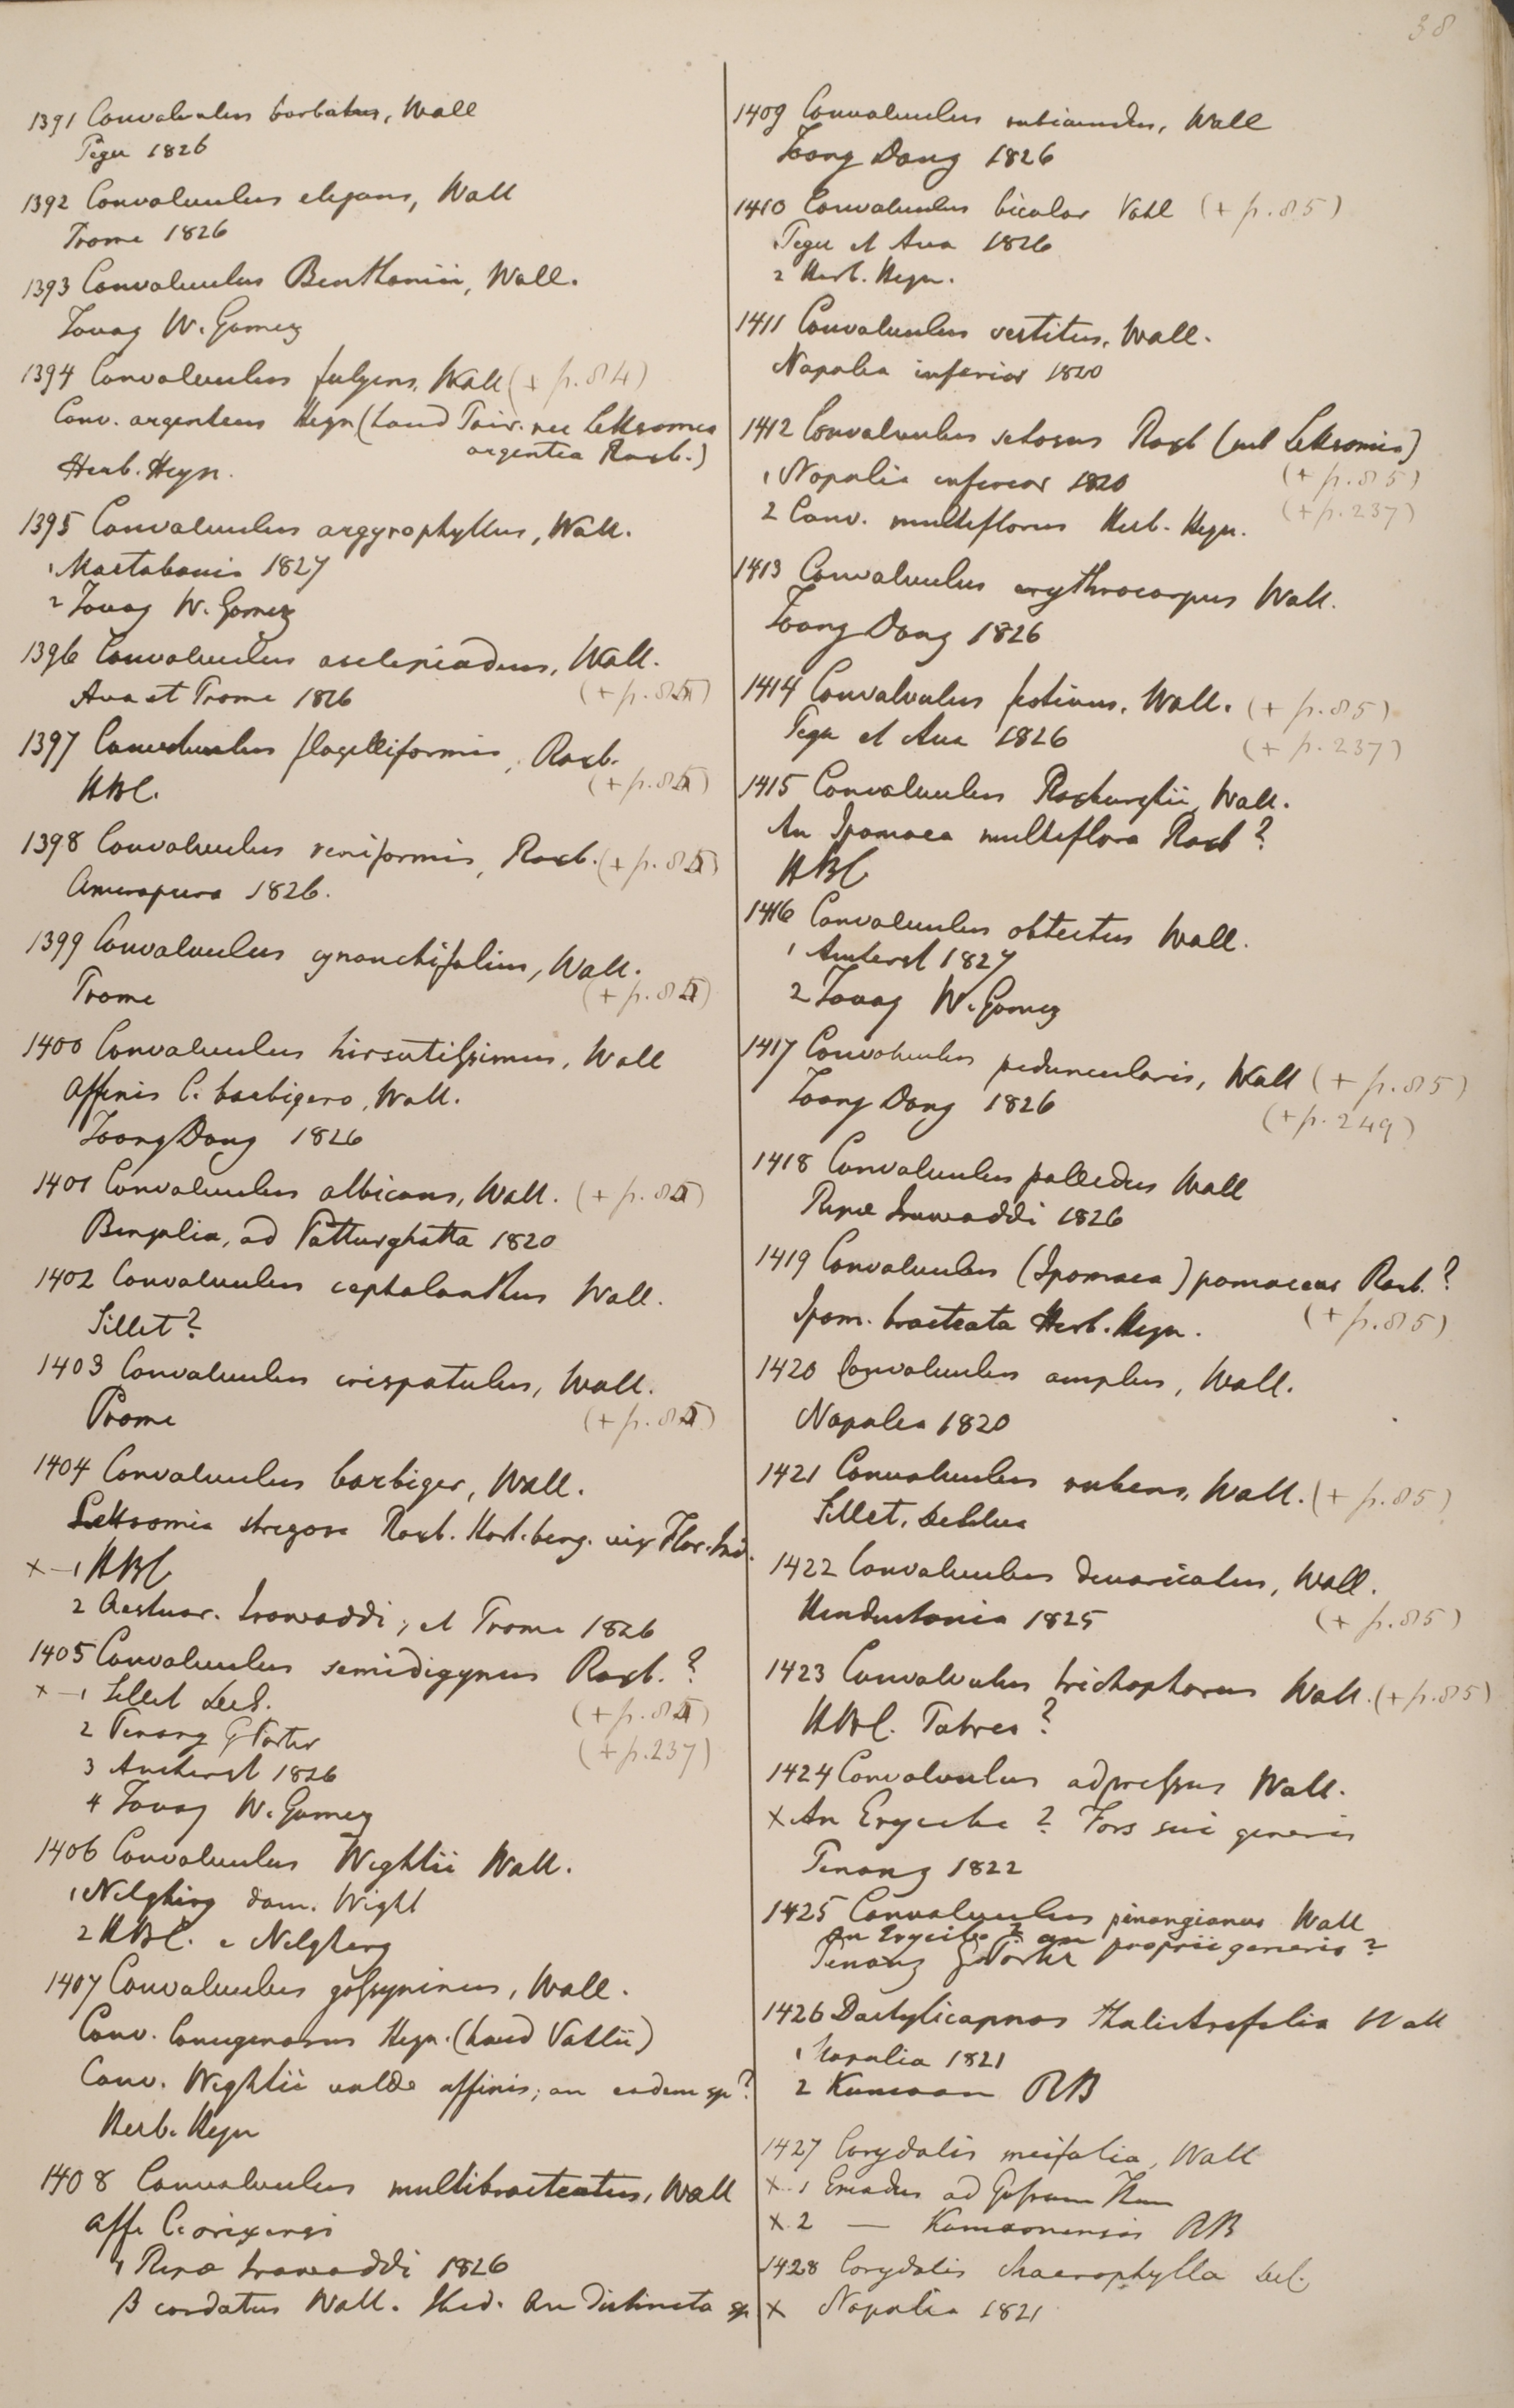 38
1391 Convolvulus barbatus, Wall
Pegu 1826
1392 Convolvulus elegans, Wall
Prome 1826
1393 Convolvulus Benthamii, Wall.
Tavoy W. Gomez
1394 Convolvulus fulgens, Wall (+ p. 84)
Conv. argenteus Heyn (haud Poir. nec Lettsomia
argentea Roxb.)
Herb. Heyn.
1395 Convolvulus argyrophyllus, Wall.
1 Martabania 1827
2 Tavoy W. Gomez
1396 Convolvulus asclepiadeus, Wall.
Ava et Prome 1826 (+ p. 85)
1397 Convolvulus flagelliformis, Roxb.
HBC. (+ p. 85)
1398 Convolvulus reniformis, Roxb. (+ p. 85)
Amurapura 1826.
1399 Convolvulus cynanchifolius, Wall.
Prome (+ p. 85)
1400 Convolvulus hirsutissimus, Wall
Affinis C. barbigero, Wall.
Toong Dong 1826
1401 Convolvulus albicans, Wall. (+ p. 85)
Bengalia, ad Patturghatta 1820
1402 Convolvulus cephalanthus Wall.
Sillet?
1403 Convolvulus crispatulus, Wall.
Prome (+ p. 85)
1404 Convolvulus barbiger, Wall.
Lettsomia strigosa Roxb. Hort. beng. vix Flor. Ind.
x – 1 HBC
2 Aestuar. Irawaddi, et Prome 1826
1405 Convolvulus semidigynus Roxb.?
x – 1 Sillet
(+ p. 85)
2 Penang G Porter
(+ p. 237)
3 Amherst 1826
4 Tavoy W. Gomez
1406 Convolvulus Wightii Wall.
1 Nilghirry dom. Wight
2 HBC. e Nilgherry
1407 Convolvulus gossypinus, Wall.
Conv. lanuginosus Heyn. (haud Vahlii)
Conv. Wightii valde affinis; an eadem sp?
Herb. Heyn
1408 Convolvulus multibracteatus, Wall
Aff. C. orixensi
1 Ripae Irawaddi 1826
β cordatus Wall. Ibid. An distincta sp
1409 Convolvulus rubicundus, Wall
Toong Dong 1826
1410 Convolvulus bicolor Vahl (+ p. 85)
Pegu et Ava 1826
2 Herb. Heyn.
1411 Convolvulus vestitus, Wall.
Napalia inferior 1820
1412 Convolvulus setosus Roxb (sub Lettsomia)
1 Napalia inferior 1820 (+ p. 85)
2 Conv. multiflorus Herb. Heyn. (+ p. 237)
1413 Convolvulus erythrocarpus Wall.
Toong Dong 1826
1414 Convolvulus festivus, Wall. (+ p. 85)
Pegu et Ava 1826 (+ p. 237)
1415 Convolvulus Roxburghii, Wall.
An Ipomaea multiflora Roxb?
HBC
1416 Convolvulus obtectus Wall.
1 Amherst 1827
2 Tavoy W. Gomez
1417 Convolvulus peduncularis, Wall (+ p. 85)
Toong Dong 1826 (+ p. 249)
1418 Convolvulus pallidus Wall
Ripae Irawaddi 1826
1419 Convolvulus (Ipomaea) pomaceus Roxb.?
Ipom. bracteata Herb. Heyn. (+ p. 85)
1420 Convolvulus amplus, Wall.
Napalia 1820
1421 Convolvulus rubens, Wall. (+ p. 85)
Sillet,
1422 Convolvulus divaricatus, Wall.
Hindustania 1825 (+ p. 85)
1423 Convolvulus trichophorus Wall. (+ p. 85)
HBC.
1424 Convolvulus adpressus Wall.
x An Erycibe? Fors sui generis
Penang 1822
1425 Convolvulus pinangianus Wall
An Erycibe? an proprii generis?
Penang G Porter
1426 Dactylicapnos thalictrifolia Wall
1 Napalia 1821
2 Kumaon RB
1427 Corydalis meifolia, Wall
x. 1 Emodus ad
x. 2 — Kamaonensis RB
1428 Corydalis chaerophylla
x Napalia 1821